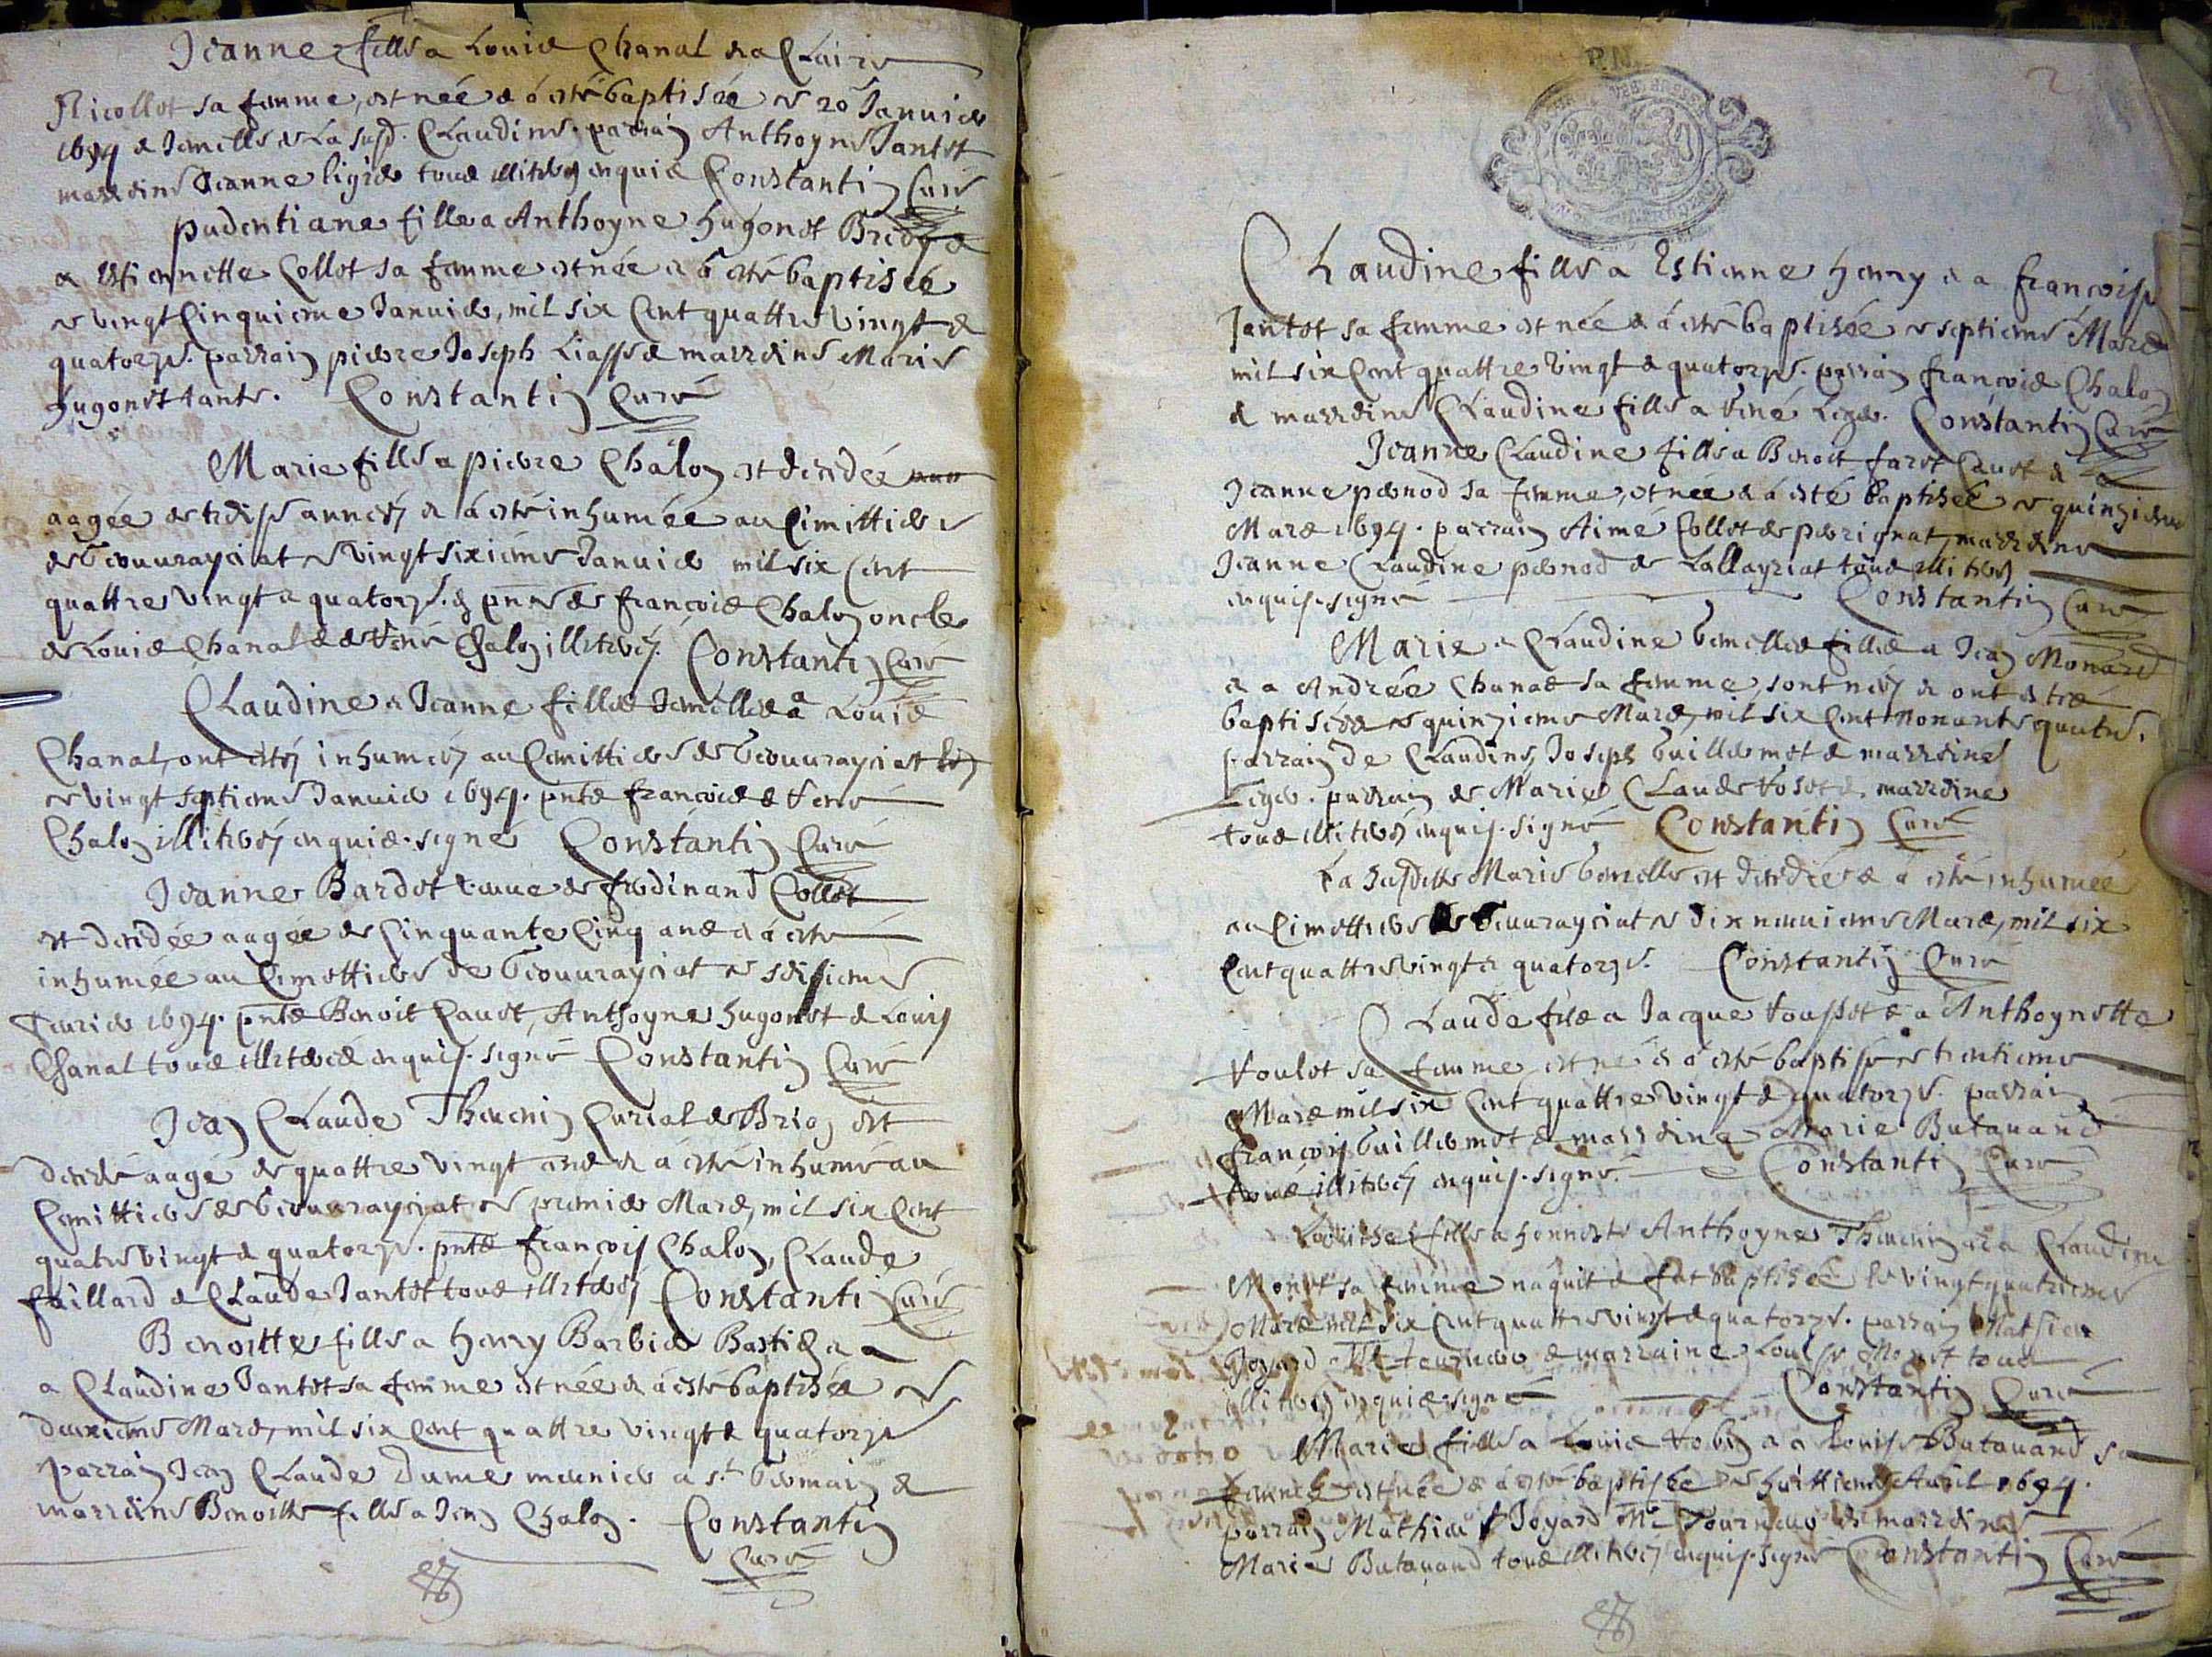 Jeanne fille a Louis Chanal & a Claire
Nicollet sa femme, est née & a esté baptisée le 20 Janvier
1694 & Jemelle de La susd. Claudine. parrain Anthoyne Jantet
marreine Jeanne ligier tous illiterés enquis Constantin Curé
pudentiane fille a Anthoyne hugonet Bredy &
a Estiennette Collet sa femme est née & a esté baptisée
le vingt Cinquieme Janvier, mil six Cent quattre vingt &
quatorze. parrain pierre Joseph Liasse & marreine Marie
hugonet tante. Constantin Curé
Marie fille a pierre Chalon est decedée
aagée de treise années & a esté inhumée au Cimittiere
de Geovurayciat le vingt sixieme Janvier mil six Cent
quattre vingt & quatorze. en pnce de françois Chalon oncle
de Louis Chanal & de René Chalon illiterés. Constantin Curé
Claudine & Jeanne filles Jemelles a Louis
Chanal, ont estés inhumées au Cemittiere de Geovurayciat
le vingt septieme Janvier 1694. pnts françois & René
Chalon illiterés enquis. signé Constantin Curé
Jeanne Bardet veuve de ferdinand Collet
est decedée aagée de Cinquante Cinq ans & a esté
inhumée au Cimettiere de Geovurayciat le seisieme
fevrier 1694. pnts Benoit Cavet, Anthoyne hugonet & Louis
Chanal tous illiterés enquis. signé Constantin Curé
Jean Claude Thevenin Curial de Brion est
decedé aagé de quattre vingt ans & a esté inhumé au
Cemittiere de Geovurayciat le premier Mars, mil six Cent
quatre vingt & quatorze. pnts françois Chalon, Claude
faillard & Claude Jantet tous illiterés Constantin Curé
Benoitte fille a henry Barbier Bastie &
a Claudine Jantet sa femme est née & a esté baptisée le
deuxieme Mars, mil six Cent quattre vingt & quatorze
parrain Jean Claude Dume meunier a st. Germain &
marreine Benoitte fille a Jean Chalon. Constantin
Curé
Claudine fille a Estienne henry & a françoise
Jantet sa femme est née & a esté baptisée le septieme Mars
mil six Cent quattre vingt & quatorze. parrain françois Chalon
& marreine Claudine fille a René Liger. Constantin Curé
Jeanne Claudine fille a Benoit faret Cavet &
Jeanne pernod sa femme, est née & a esté baptisée le quinzieme
Mars 1694. parrain Aimé Collet de perignat, marreine
Jeanne Claudine pernod de Lallayriat tous illiterés
enquis. signé Constantin Curé
Marie & Claudine Gemelles filles a Jean Monard
& a Andrée Chanal sa femme, sont nées & ont estés
baptisées le quinzieme Mars, mil six Cent Nonante quatre.
parrain de Claudine, Joseph Guillermet & marreine
Liger. parrain de Marie Claude & marreine
tous illiterés enquis. signé Constantin Curé
La susditte Marie Gemelle est decedée & a esté inhumée
au Cimettiere de Geovurayciat le dix neuvieme Mars, mil six
Cent quattre vingt & quatorze. Constantin Curé
Claude fils a Jacque & a Anthoynette
sa femme, est né & a esté baptisé le trentieme
Mars mil six Cent quattre vingt & quatorze. parrain
françois Guillermet & marreine Marie Butavand
tous illiterés enquis. signé. Constantin Curé
Louise fille a honneste Anthoyne Thevenin & a Claudine
Monet sa femme naquit & fut baptisée le vingt quatrieme
Mars mil six Cent quattre vingt & quatorze. parrain Mathieu
Joyard Me Tourneur & marraine Louise Monet tous
illiterés enquis. signé Constantin Curé
Marie fille a Louis & a Louise Butavand sa
femme est née & a esté baptisée le huittieme Avril 1694.
parrain Mathieu Joyard Me Tourneur & marreine
Marie Butavand tous illiterés enquis. signé Constantin Curé